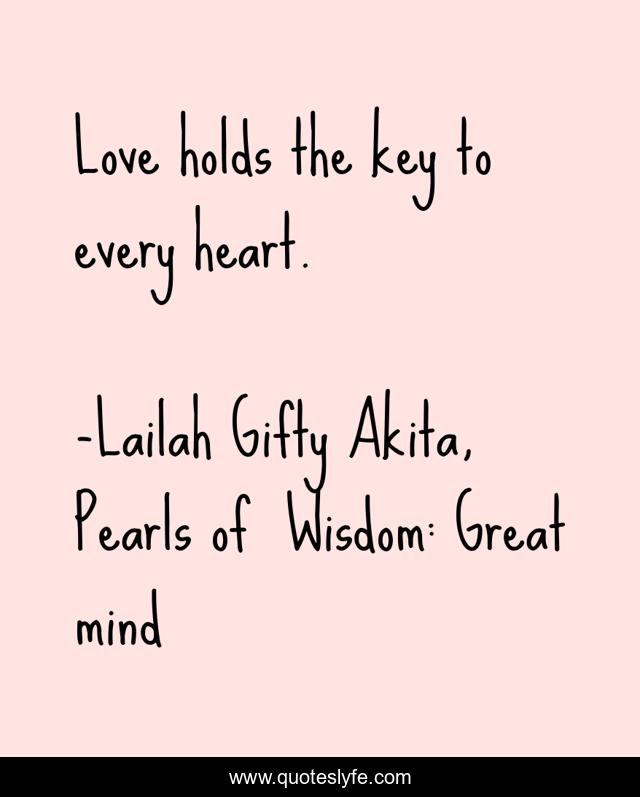 Love holds the key to
every heart.
-Lailah Gifty Akita,
Pearls of Wisdom: Great
mind
www.quoteslyfe.com